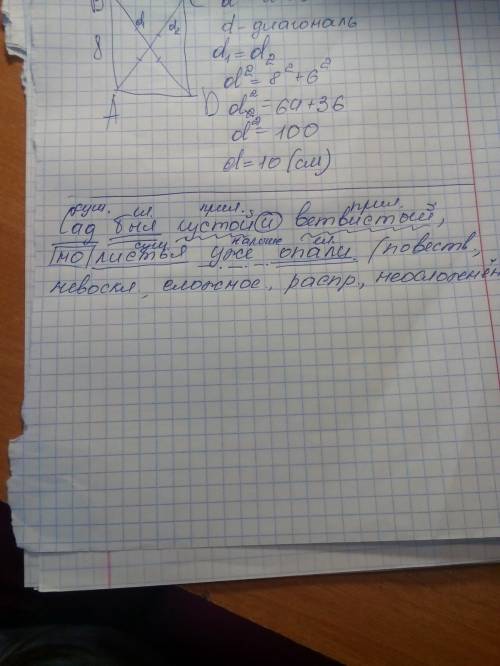 d - диагональ
d₁ = d₂
d² = 8² + 6²
d² = 64 + 36
d² = 100
d = 10 (см)
d
d₂
8
A
D
сущ. гл. прил. прил.
Сад был густой и ветвистый,
сущ. наречие гл.
но листья уже опали (повеств,
невоскл, сложное, распр, неосложнён